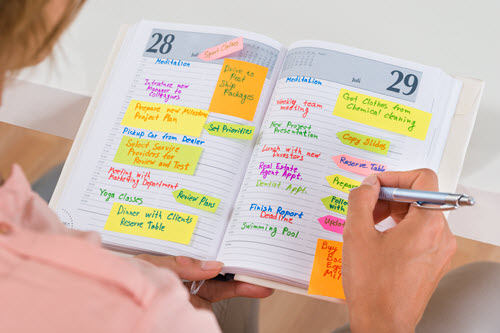 28
Sport Clothes
Juli
Meditation
Introduce new
Manager to
Colleagues
Drive to
Post
Ship
Packages
Prepare new Milestone
Project Plan
Set Priorities
Pickup Car from Dealer
Select Service
Providers for
Review and Test
Meeting with
Marketing Department
Yoga Classes
Review Plans
Dinner with Clients
Reserve Table
Juli
29
Meditation
Weekly team
meeting
Got Clothes from
Chemical cleaning
New Project
Presentation
Copy Slides
Lunch with new
investors
Reserve Table
Real Estate
Agent Appt.
Prepare
Dentist Appt.
Follow
with
Finish Report
Deadline
Update
Swimming Pool
Buy